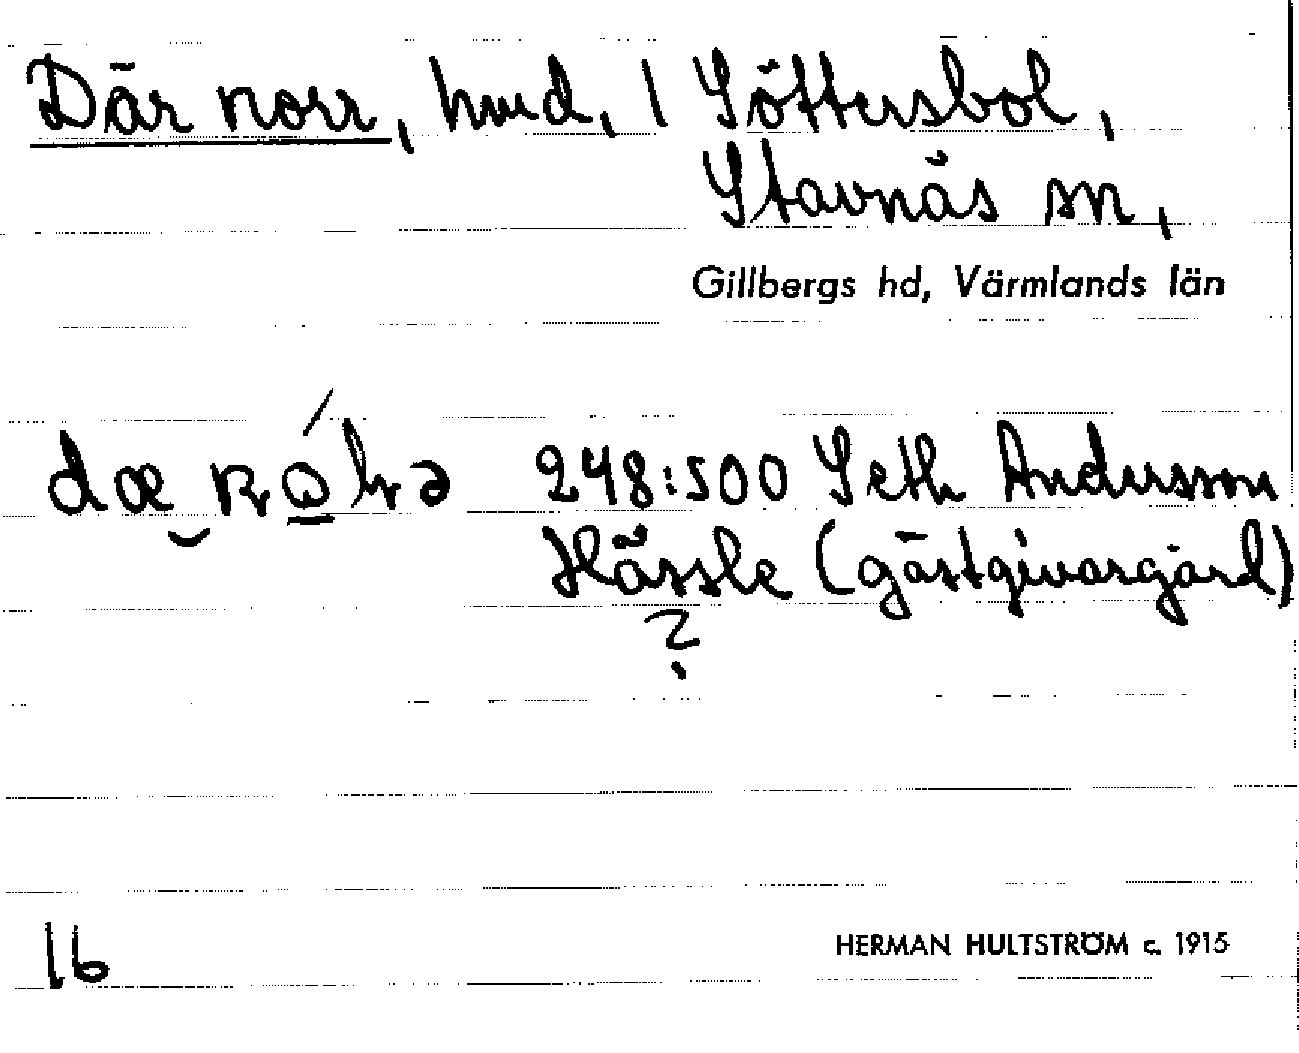 Där norr, hmd, 1 Söttersbol,
Stavnäs sn,
Gillbergs hd, Värmlands län
248:500 Seth Andersson
Hässle (gästgivargård)
?
16
HERMAN HULTSTRÖM c. 1915